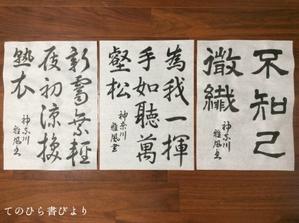 不知己
微纖
神奈川
雅風書
為我一揮
手如聽萬
壑松
神奈川
雅風書
新霽乗輕
屐初涼換
熱衣
神奈川
雅風書
てのひら書びより